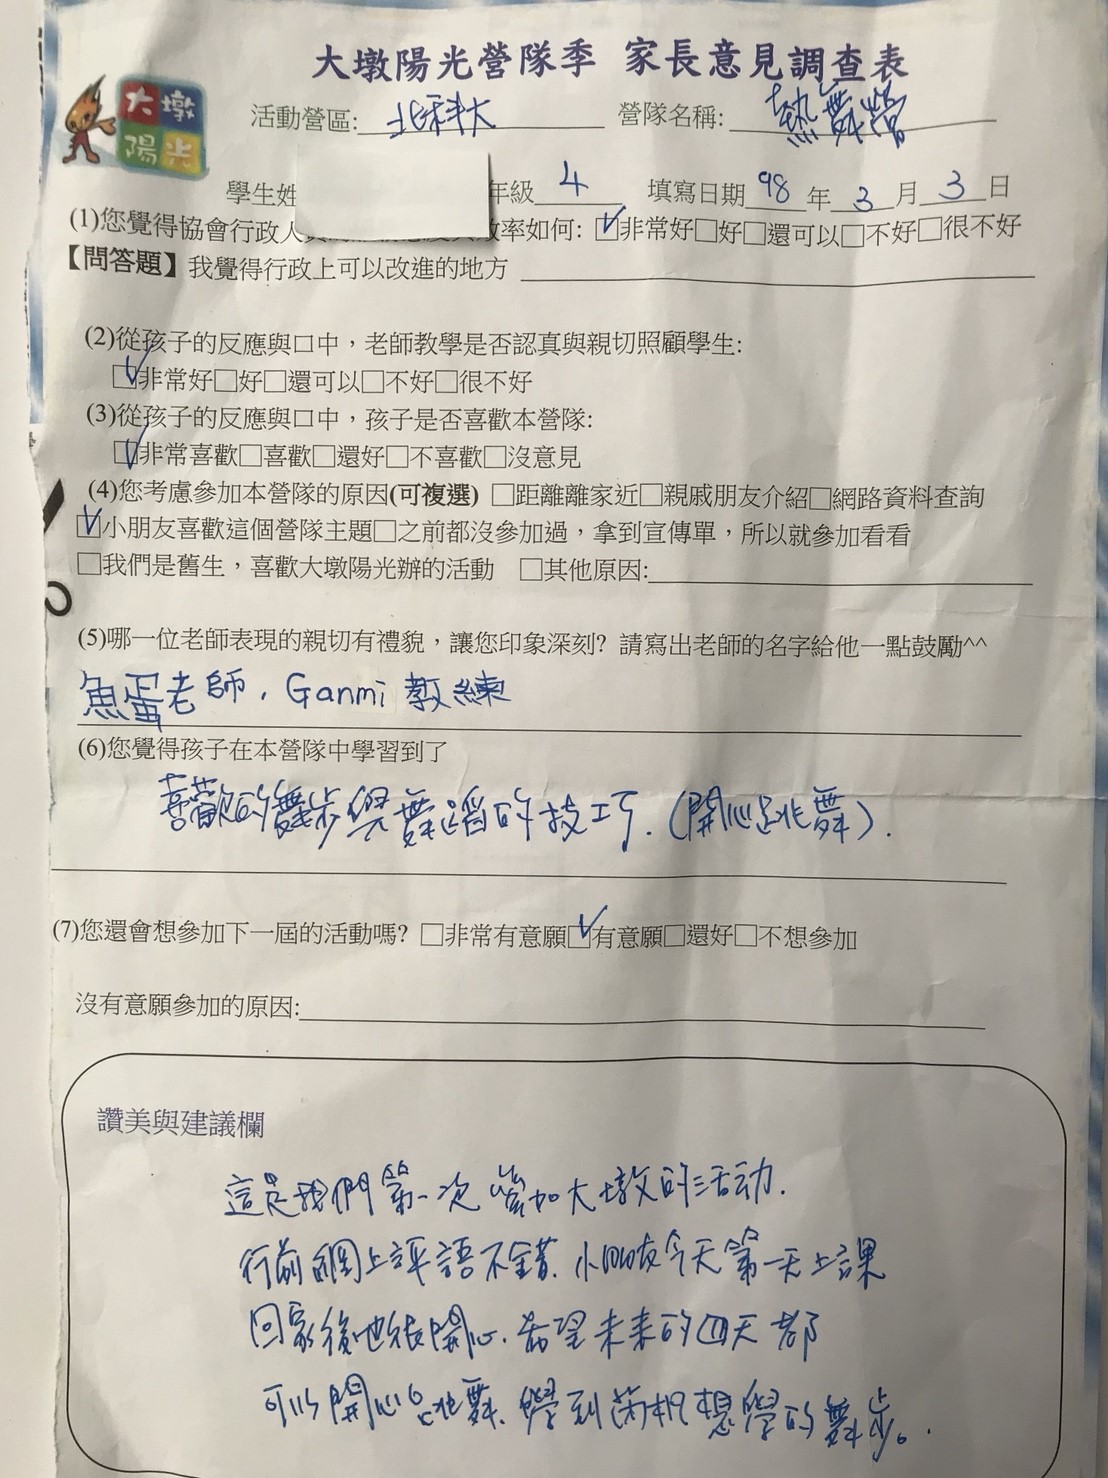 大墩陽光營隊季 家長意見調查表
大墩
陽光
活動營區: 北科大 營隊名稱: 熱舞營
學生姓 年級 4 填寫日期 98 年 3 月 3 日
(1)您覺得協會行政人 效率如何: ☑非常好□好□還可以□不好□很不好
【問答題】我覺得行政上可以改進的地方
(2)從孩子的反應與口中，老師教學是否認真與親切照顧學生:
☑非常好□好□還可以□不好□很不好
(3)從孩子的反應與口中，孩子是否喜歡本營隊:
☑非常喜歡□喜歡□還好□不喜歡□沒意見
(4)您考慮參加本營隊的原因(可複選) □距離離家近□親戚朋友介紹□網路資料查詢
☑小朋友喜歡這個營隊主題□之前都沒參加過，拿到宣傳單，所以就參加看看
□我們是舊生，喜歡大墩陽光辦的活動 □其他原因:
(5)哪一位老師表現的親切有禮貌，讓您印象深刻? 請寫出老師的名字給他一點鼓勵^^
魚蛋老師, Ganmi 教練
(6)您覺得孩子在本營隊中學習到了
喜歡的舞步與舞蹈的技巧. (開心跳舞).
(7)您還會想參加下一屆的活動嗎? □非常有意願☑有意願□還好□不想參加
沒有意願參加的原因:
讚美與建議欄
這是我們第一次參加大墩的活动.
行前網上評語不錯. 小朋友今天第一天上課
回家後也很開心. 希望未來的四天都
可以開心跳舞. 學到 想學的舞步。.